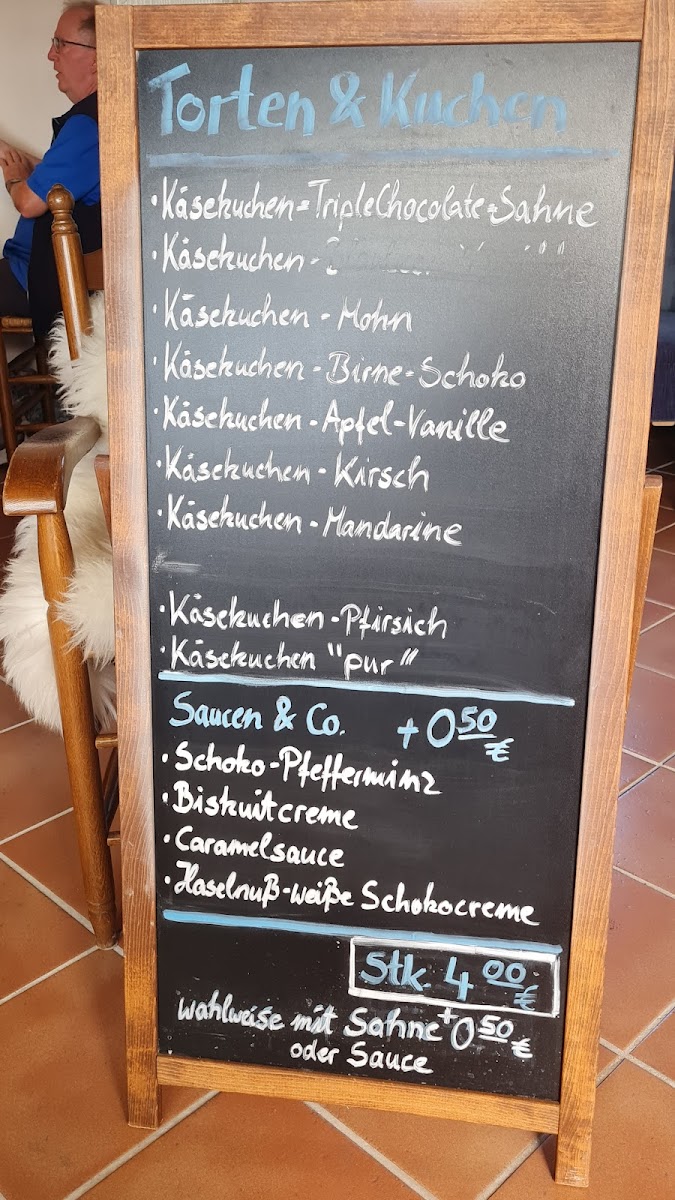 Torten & Kuchen
· Käsekuchen-TripleChocolate-Sahne
· Käsekuchen -
· Käsekuchen - Mohn
· Käsekuchen - Birne-Schoko
· Käsekuchen - Apfel-Vanille
· Käsekuchen - Kirsch
· Käsekuchen - Mandarine
· Käsekuchen - Pfirsich
· Käsekuchen "pur"
Saucen & Co. + 0 50 €
· Schoko-Pfefferminz
· Biskuitcreme
· Caramelsauce
· Haselnuß-weiße Schokocreme
Stk. 4 00 €
wahlweise mit Sahne + 0 50 €
oder Sauce